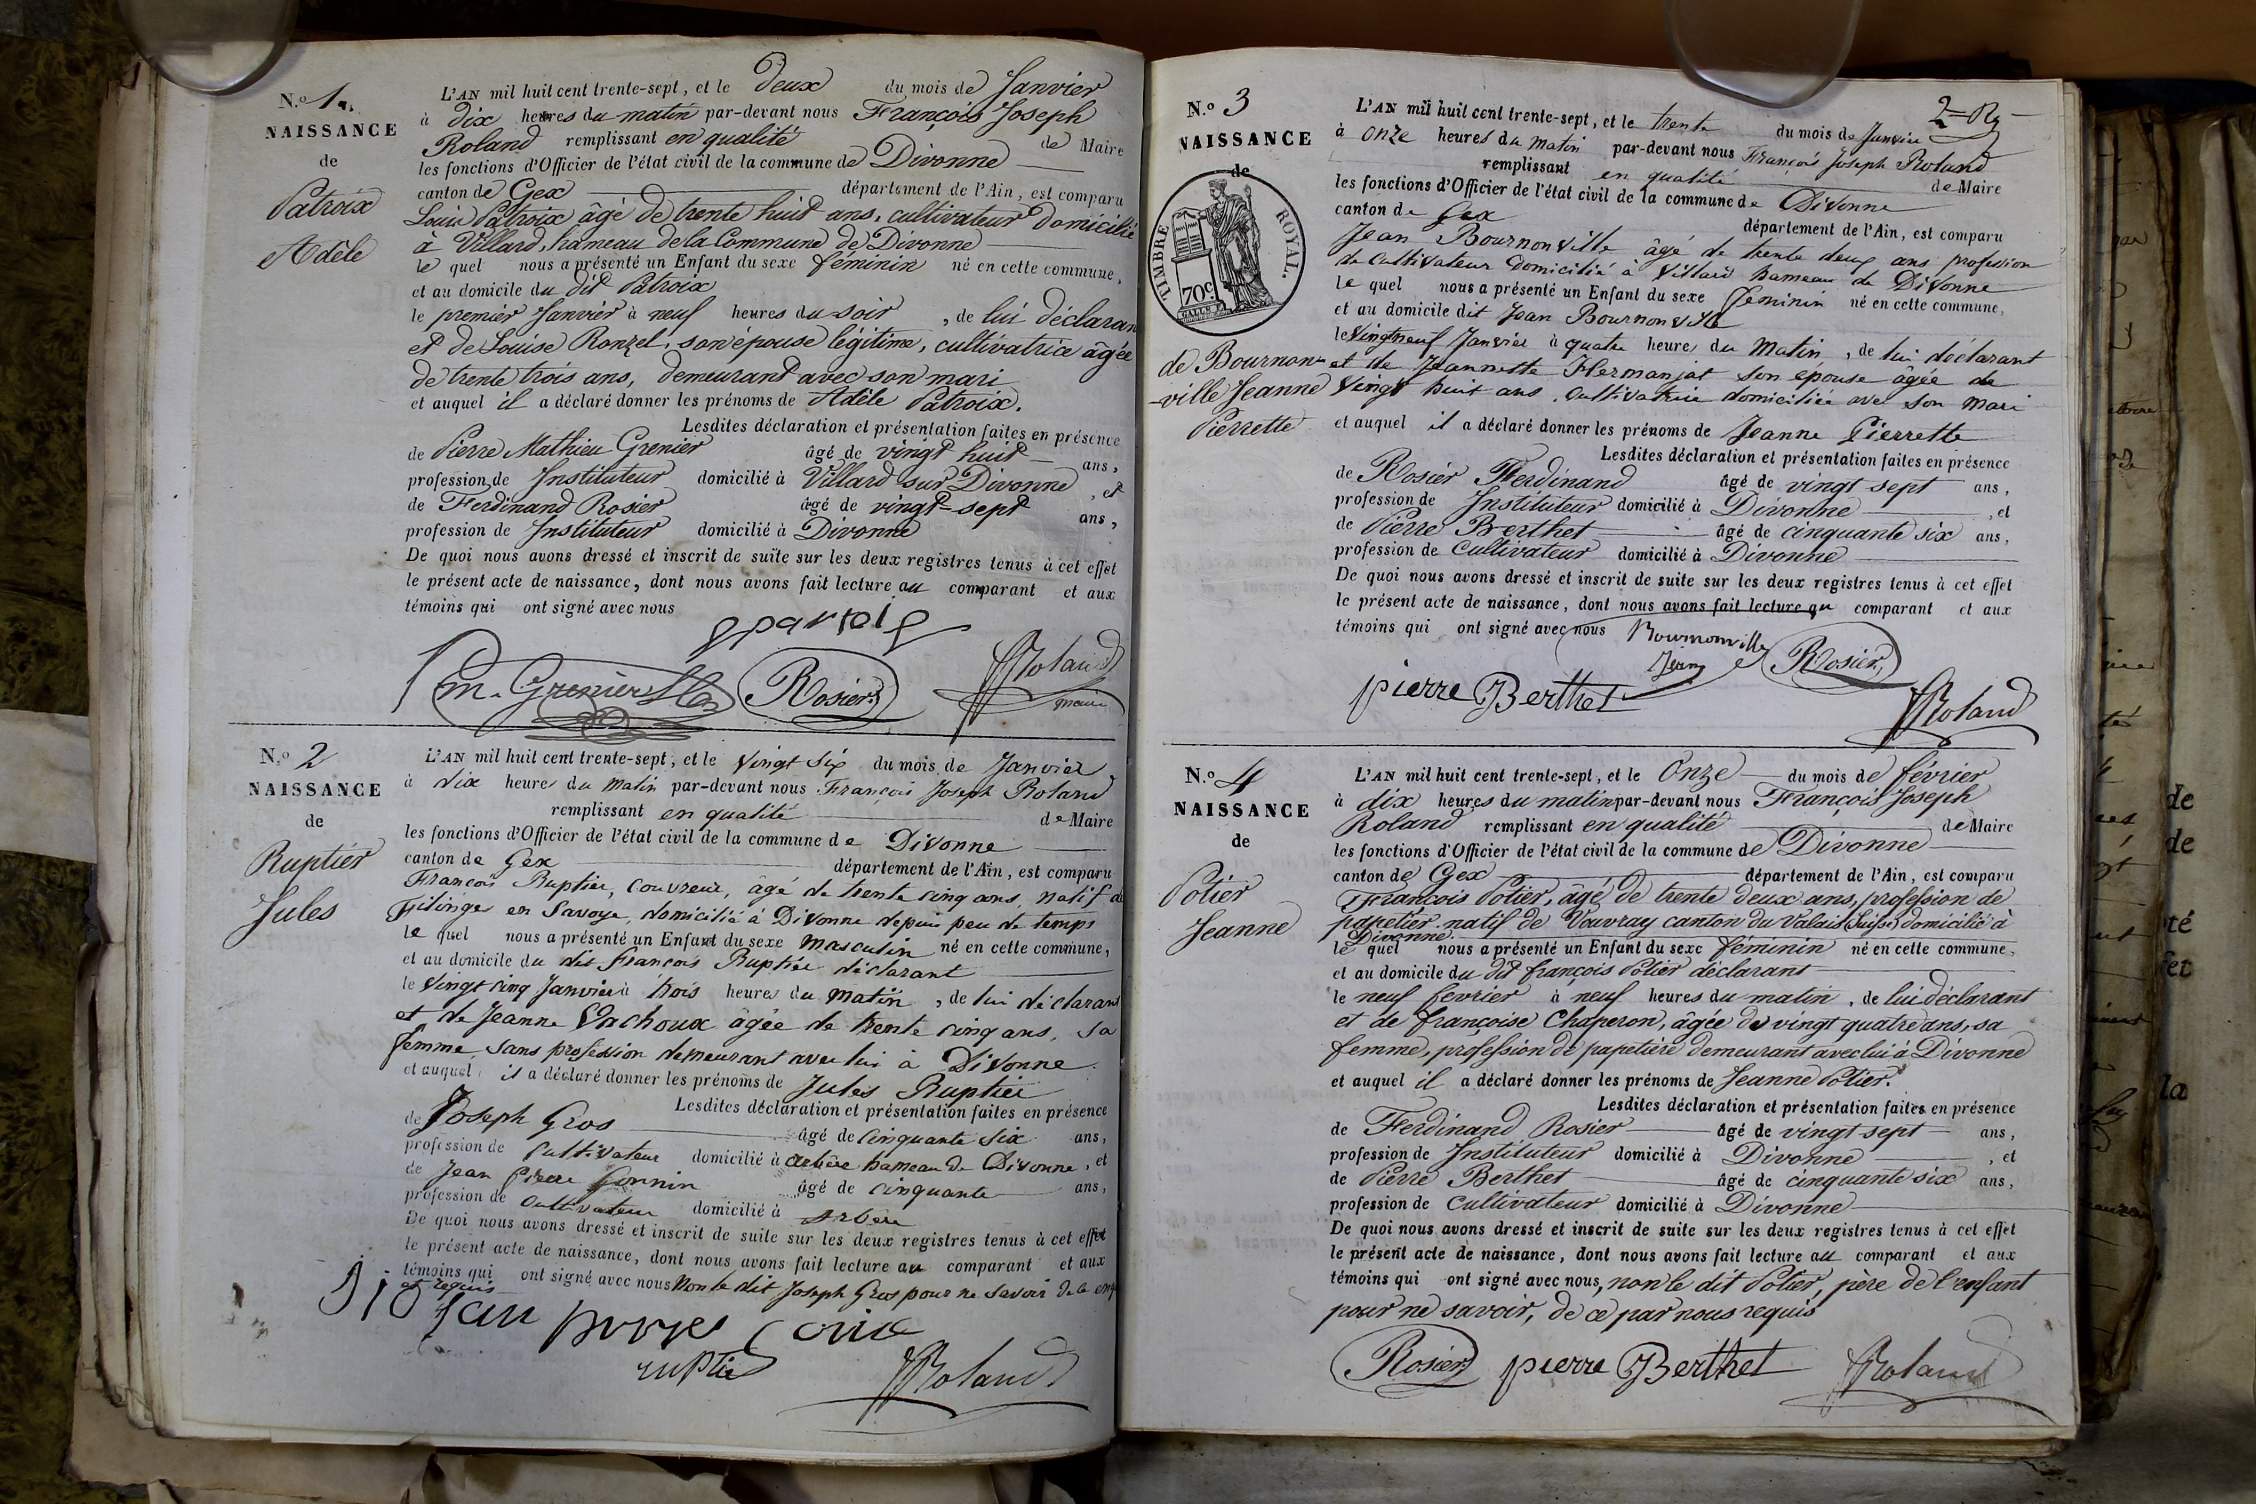 N.º 1.
NAISSANCE
de
Patroix
Adèle
L'AN mil huit cent trente-sept, et le deux du mois de Janvier
à dix heures du matin par-devant nous François Joseph
Roland remplissant en qualité de Maire
les fonctions d'Officier de l'état civil de la commune de Divonne
canton de Gex département de l'Ain, est comparu
Louis Patroix âgé de trente huit ans, cultivateur domicilié
à Villard, hameau de la Commune de Divonne
le quel nous a présenté un Enfant du sexe féminin né en cette commune,
et au domicile du dit Patroix
le premier Janvier à neuf heures du soir, de lui déclarant
et de Louise Ronzel, son épouse légitime, cultivatrice âgée
de trente trois ans, demeurant avec son mari
et auquel il a déclaré donner les prénoms de Adèle Patroix.
Lesdites déclaration et présentation faites en présence
de Pierre Mathieu Grenier âgé de vingt huit ans,
profession de Instituteur domicilié à Villard sur Divonne, et
de Ferdinand Rosier âgé de vingt-sept ans,
profession de Instituteur domicilié à Divonne
De quoi nous avons dressé et inscrit de suite sur les deux registres tenus à cet effet
le présent acte de naissance, dont nous avons fait lecture au comparant et aux
témoins qui ont signé avec nous
m. Grenier Rosier Roland
maire
N.º 2
NAISSANCE
de
Ruptier
Jules
L'AN mil huit cent trente-sept, et le vingt six du mois de Janvier
à dix heures du matin par-devant nous François Joseph Roland
remplissant en qualité de Maire
les fonctions d'Officier de l'état civil de la commune de Divonne
canton de Gex département de l'Ain, est comparu
François Ruptier, couvreur, âgé de trente cinq ans, natif de
Filinge en Savoye, domicilié à Divonne depuis peu de temps
le quel nous a présenté un Enfant du sexe masculin né en cette commune,
et au domicile du dit François Ruptier déclarant
le vingt cinq Janvier à trois heures du matin, de lui déclarant
et de Jeanne Vachoux âgée de trente cinq ans, sa
femme, sans profession demeurant avec lui à Divonne
et auquel il a déclaré donner les prénoms de Jules Ruptier
Lesdites déclaration et présentation faites en présence
de Joseph Gros âgé de cinquante six ans,
profession de cultivateur domicilié à Arbère hameau de Divonne, et
de Jean Pierre Gonnin âgé de cinquante ans,
profession de cultivateur domicilié à Arbère
De quoi nous avons dressé et inscrit de suite sur les deux registres tenus à cet effet
le présent acte de naissance, dont nous avons fait lecture au comparant et aux
témoins qui ont signé avec nous non le dit Joseph Gros pour ne savoir de ce
et requis
ruptier Roland
2
N.º 3
NAISSANCE
de
TIMBRE ROYAL.
70c.
de Bournon-
ville Jeanne
Pierrette
L'AN mil huit cent trente-sept, et le trente du mois de Janvier
à onze heures du matin par-devant nous François Joseph Roland
remplissant en qualité de Maire
les fonctions d'Officier de l'état civil de la commune de Divonne
canton de Gex département de l'Ain, est comparu
Jean Bournonville âgé de trente deux ans profession
de cultivateur domicilié à Villard hameau de Divonne
le quel nous a présenté un Enfant du sexe féminin né en cette commune,
et au domicile dit Jean Bournonville
le vingt neuf Janvier à quatre heures du matin, de lui déclarant
et de Jeannette Hermanjat son épouse âgée de
vingt huit ans, cultivatrice domiciliée avec son mari
et auquel il a déclaré donner les prénoms de Jeanne Pierrette
Lesdites déclaration et présentation faites en présence
de Rosier Ferdinand âgé de vingt sept ans,
profession de Instituteur domicilié à Divonne, et
de Pierre Berthet âgé de cinquante six ans,
profession de cultivateur domicilié à Divonne
De quoi nous avons dressé et inscrit de suite sur les deux registres tenus à cet effet
le présent acte de naissance, dont nous avons fait lecture au comparant et aux
témoins qui ont signé avec nous Bournonville
Jean Rosier
pierre Berthet Roland
N.º 4
NAISSANCE
de
Potier
Jeanne
L'AN mil huit cent trente-sept, et le Onze du mois de février
à dix heures du matin par-devant nous François Joseph
Roland remplissant en qualité de Maire
les fonctions d'Officier de l'état civil de la commune de Divonne
canton de Gex département de l'Ain, est comparu
François Potier, âgé de trente deux ans, profession de
papetier natif de Vouvray canton du Valais (Suisse) domicilié à
Divonne.
le quel nous a présenté un Enfant du sexe féminin né en cette commune,
et au domicile du dit françois Potier déclarant
le neuf février à neuf heures du matin, de lui déclarant
et de françoise Chaperon, âgée de vingt quatre ans, sa
femme, profession de papetière demeurant avec lui à Divonne
et auquel il a déclaré donner les prénoms de Jeanne Potier.
Lesdites déclaration et présentation faites en présence
de Ferdinand Rosier âgé de vingt sept ans,
profession de Instituteur domicilié à Divonne, et
de Pierre Berthet âgé de cinquante six ans,
profession de cultivateur domicilié à Divonne
De quoi nous avons dressé et inscrit de suite sur les deux registres tenus à cet effet
le présent acte de naissance, dont nous avons fait lecture au comparant et aux
témoins qui ont signé avec nous, non le dit Potier, père de l'enfant
pour ne savoir, de ce par nous requis
Rosier pierre Berthet Roland